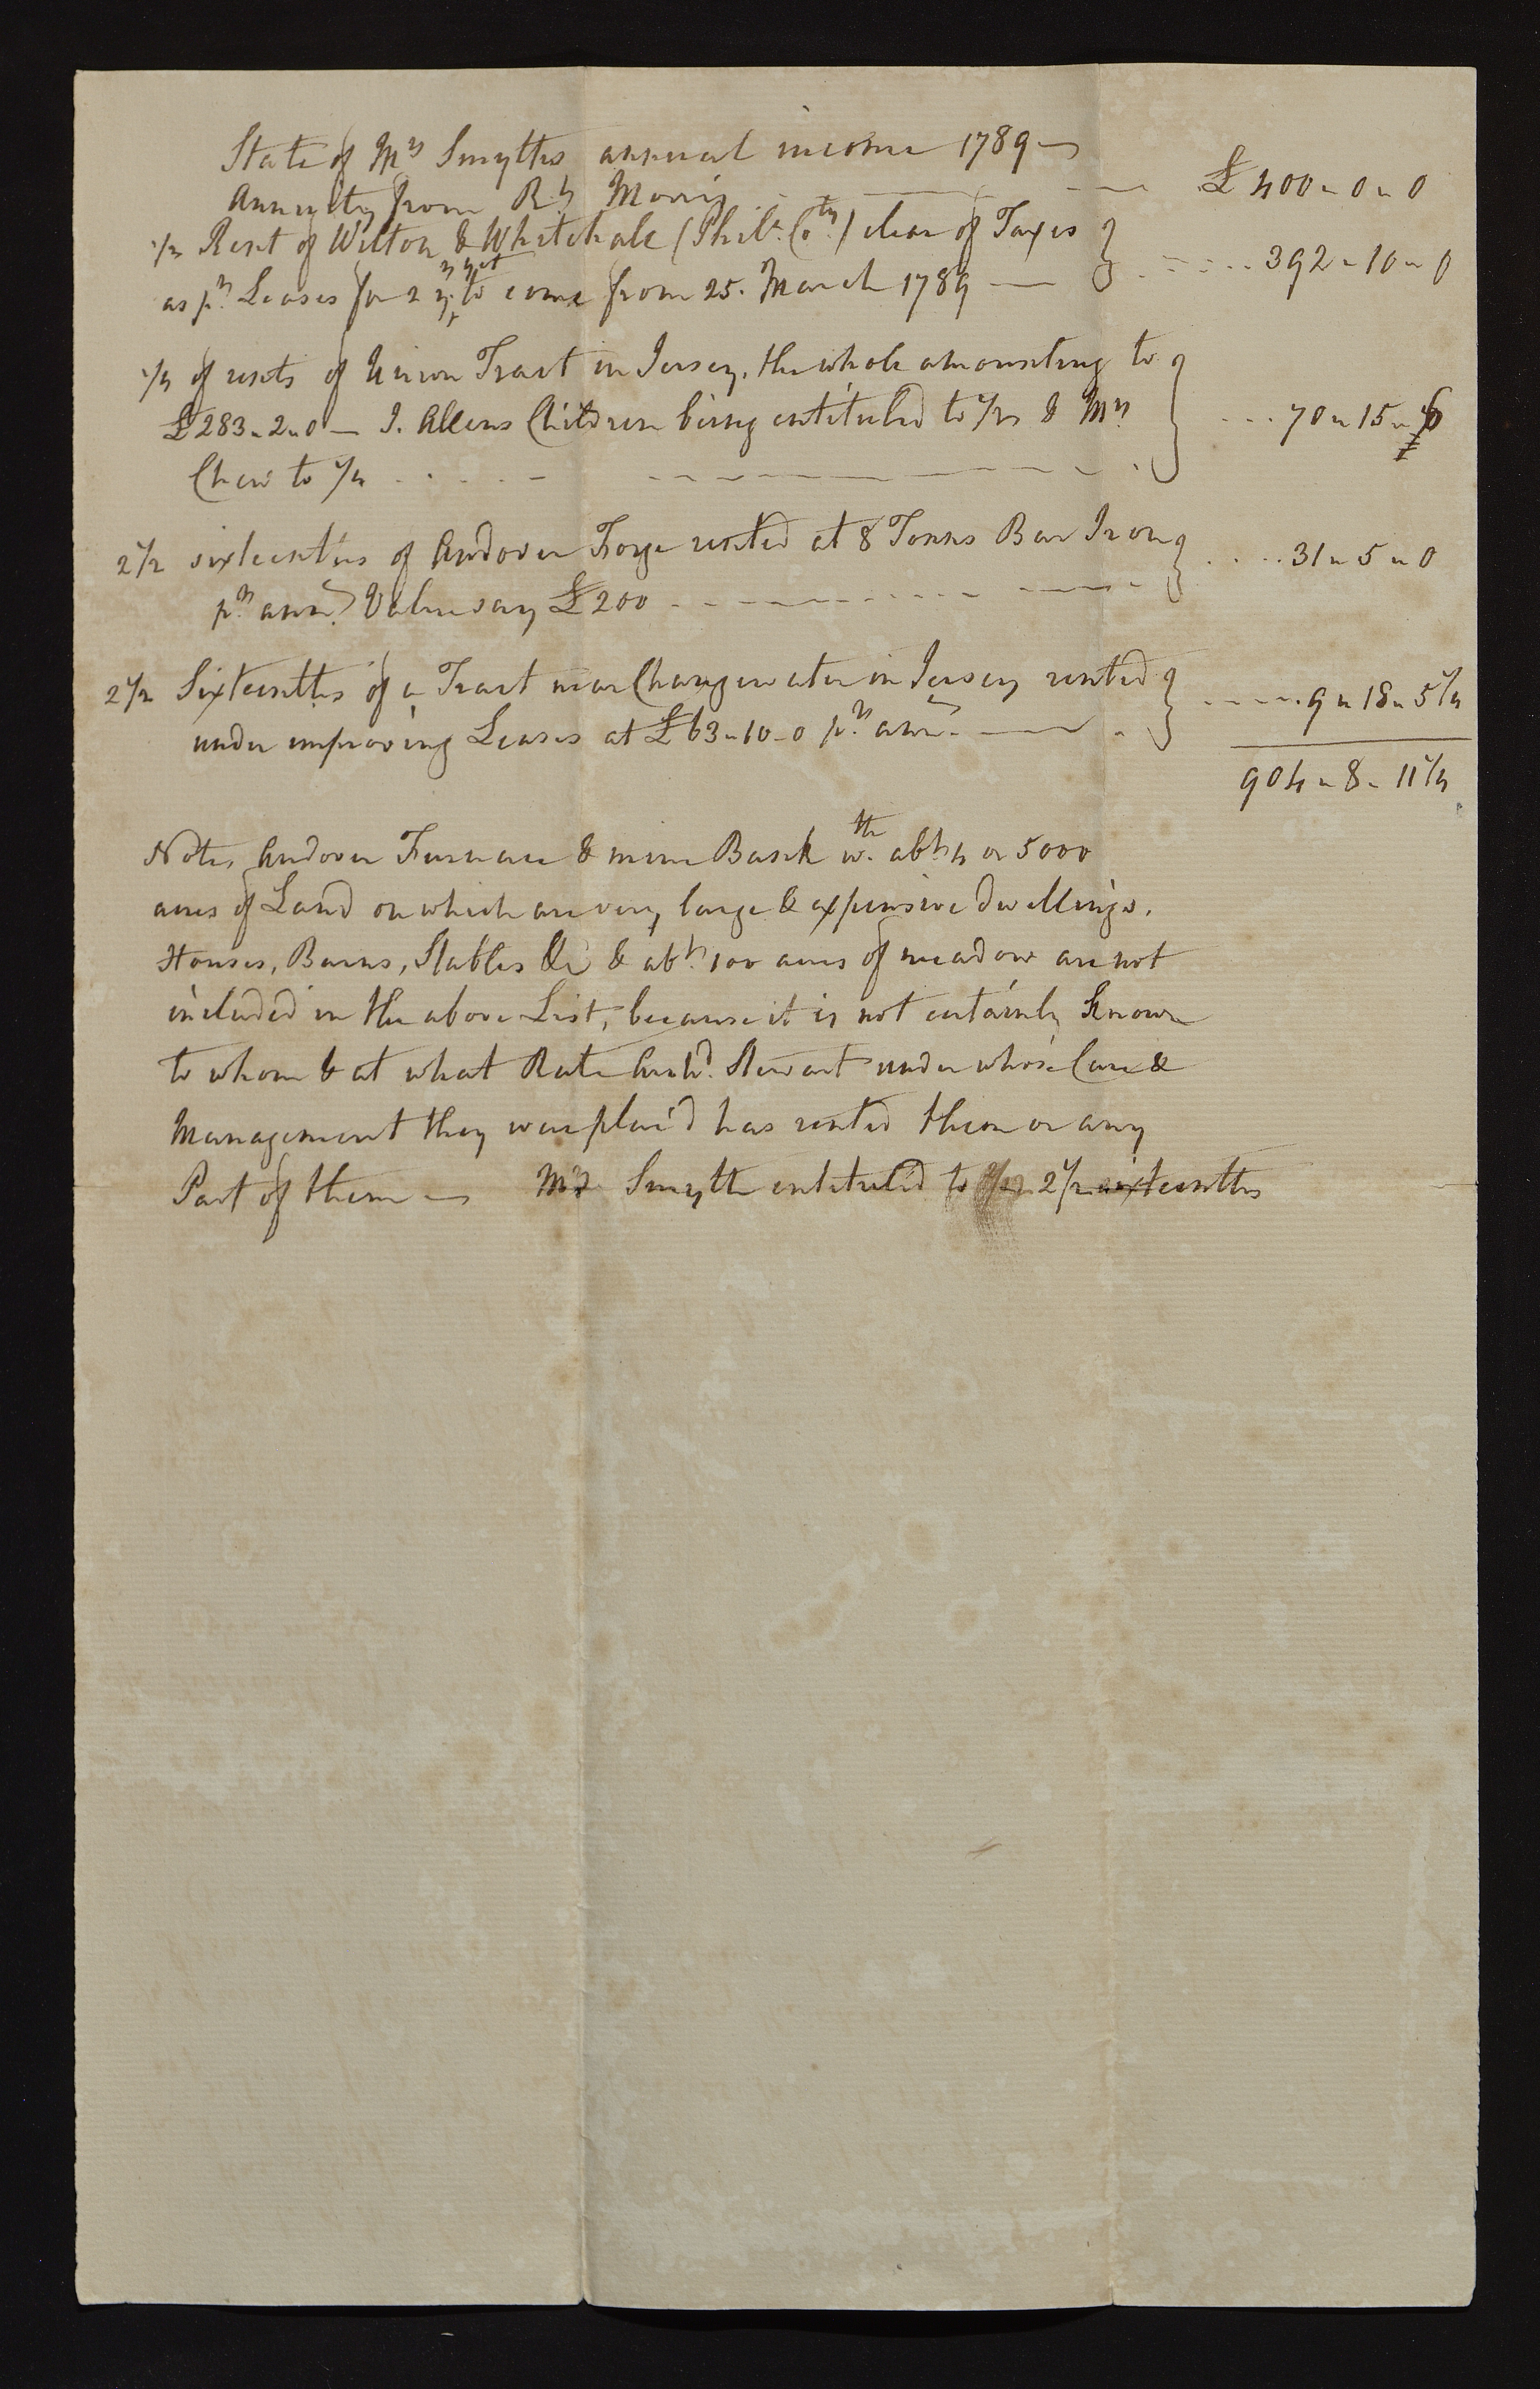 State of Mrs Smyths annual income 1789 —
Annuity from Rt Morris - — — £ 400 - 0 - 0
1/2 Rent of Wilton & Whitehale (Phila. Coty.) clear of Taxes
as pr. Leases for 2 yrs yet to come from 25. March 1789 — } ..... 392 - 10 - 0
1/4 of rents of Union Tract in Jersey, the whole amounting to
£283 - 2 - 0 — J. Allens Children being entituled to 1/2 & Mrs. } ... 70 - 15 - 6
Chew to 1/4
2 1/2 sixteenths of Andover Forge rented at 8 Tonns Bar Iron
pr. ann. Value say £200 } .... 31 - 5 - 0
2 1/2 Sixteenths of a Tract near Changewater in Jersey rented
under improving Leases at £63 - 10 - 0 pr. ann. — } ..... 9 - 18 - 5 1/4
904 - 8 - 11 1/4
Note, Andover Furnace & mine Bank wth. abt. 4 or 5000
acres of Land on which are very large & expensive dwellings.
Houses, Barns, Stables &c & abt. 100 acres of meadow are not
included in the above List, because it is not certainly known
to whom & at what Rate Archd. Stewart under whose Care &
Management they were plac'd has rented them or any
Part of them — Mrs Smyth entituled to 2 1/2 sixteenths